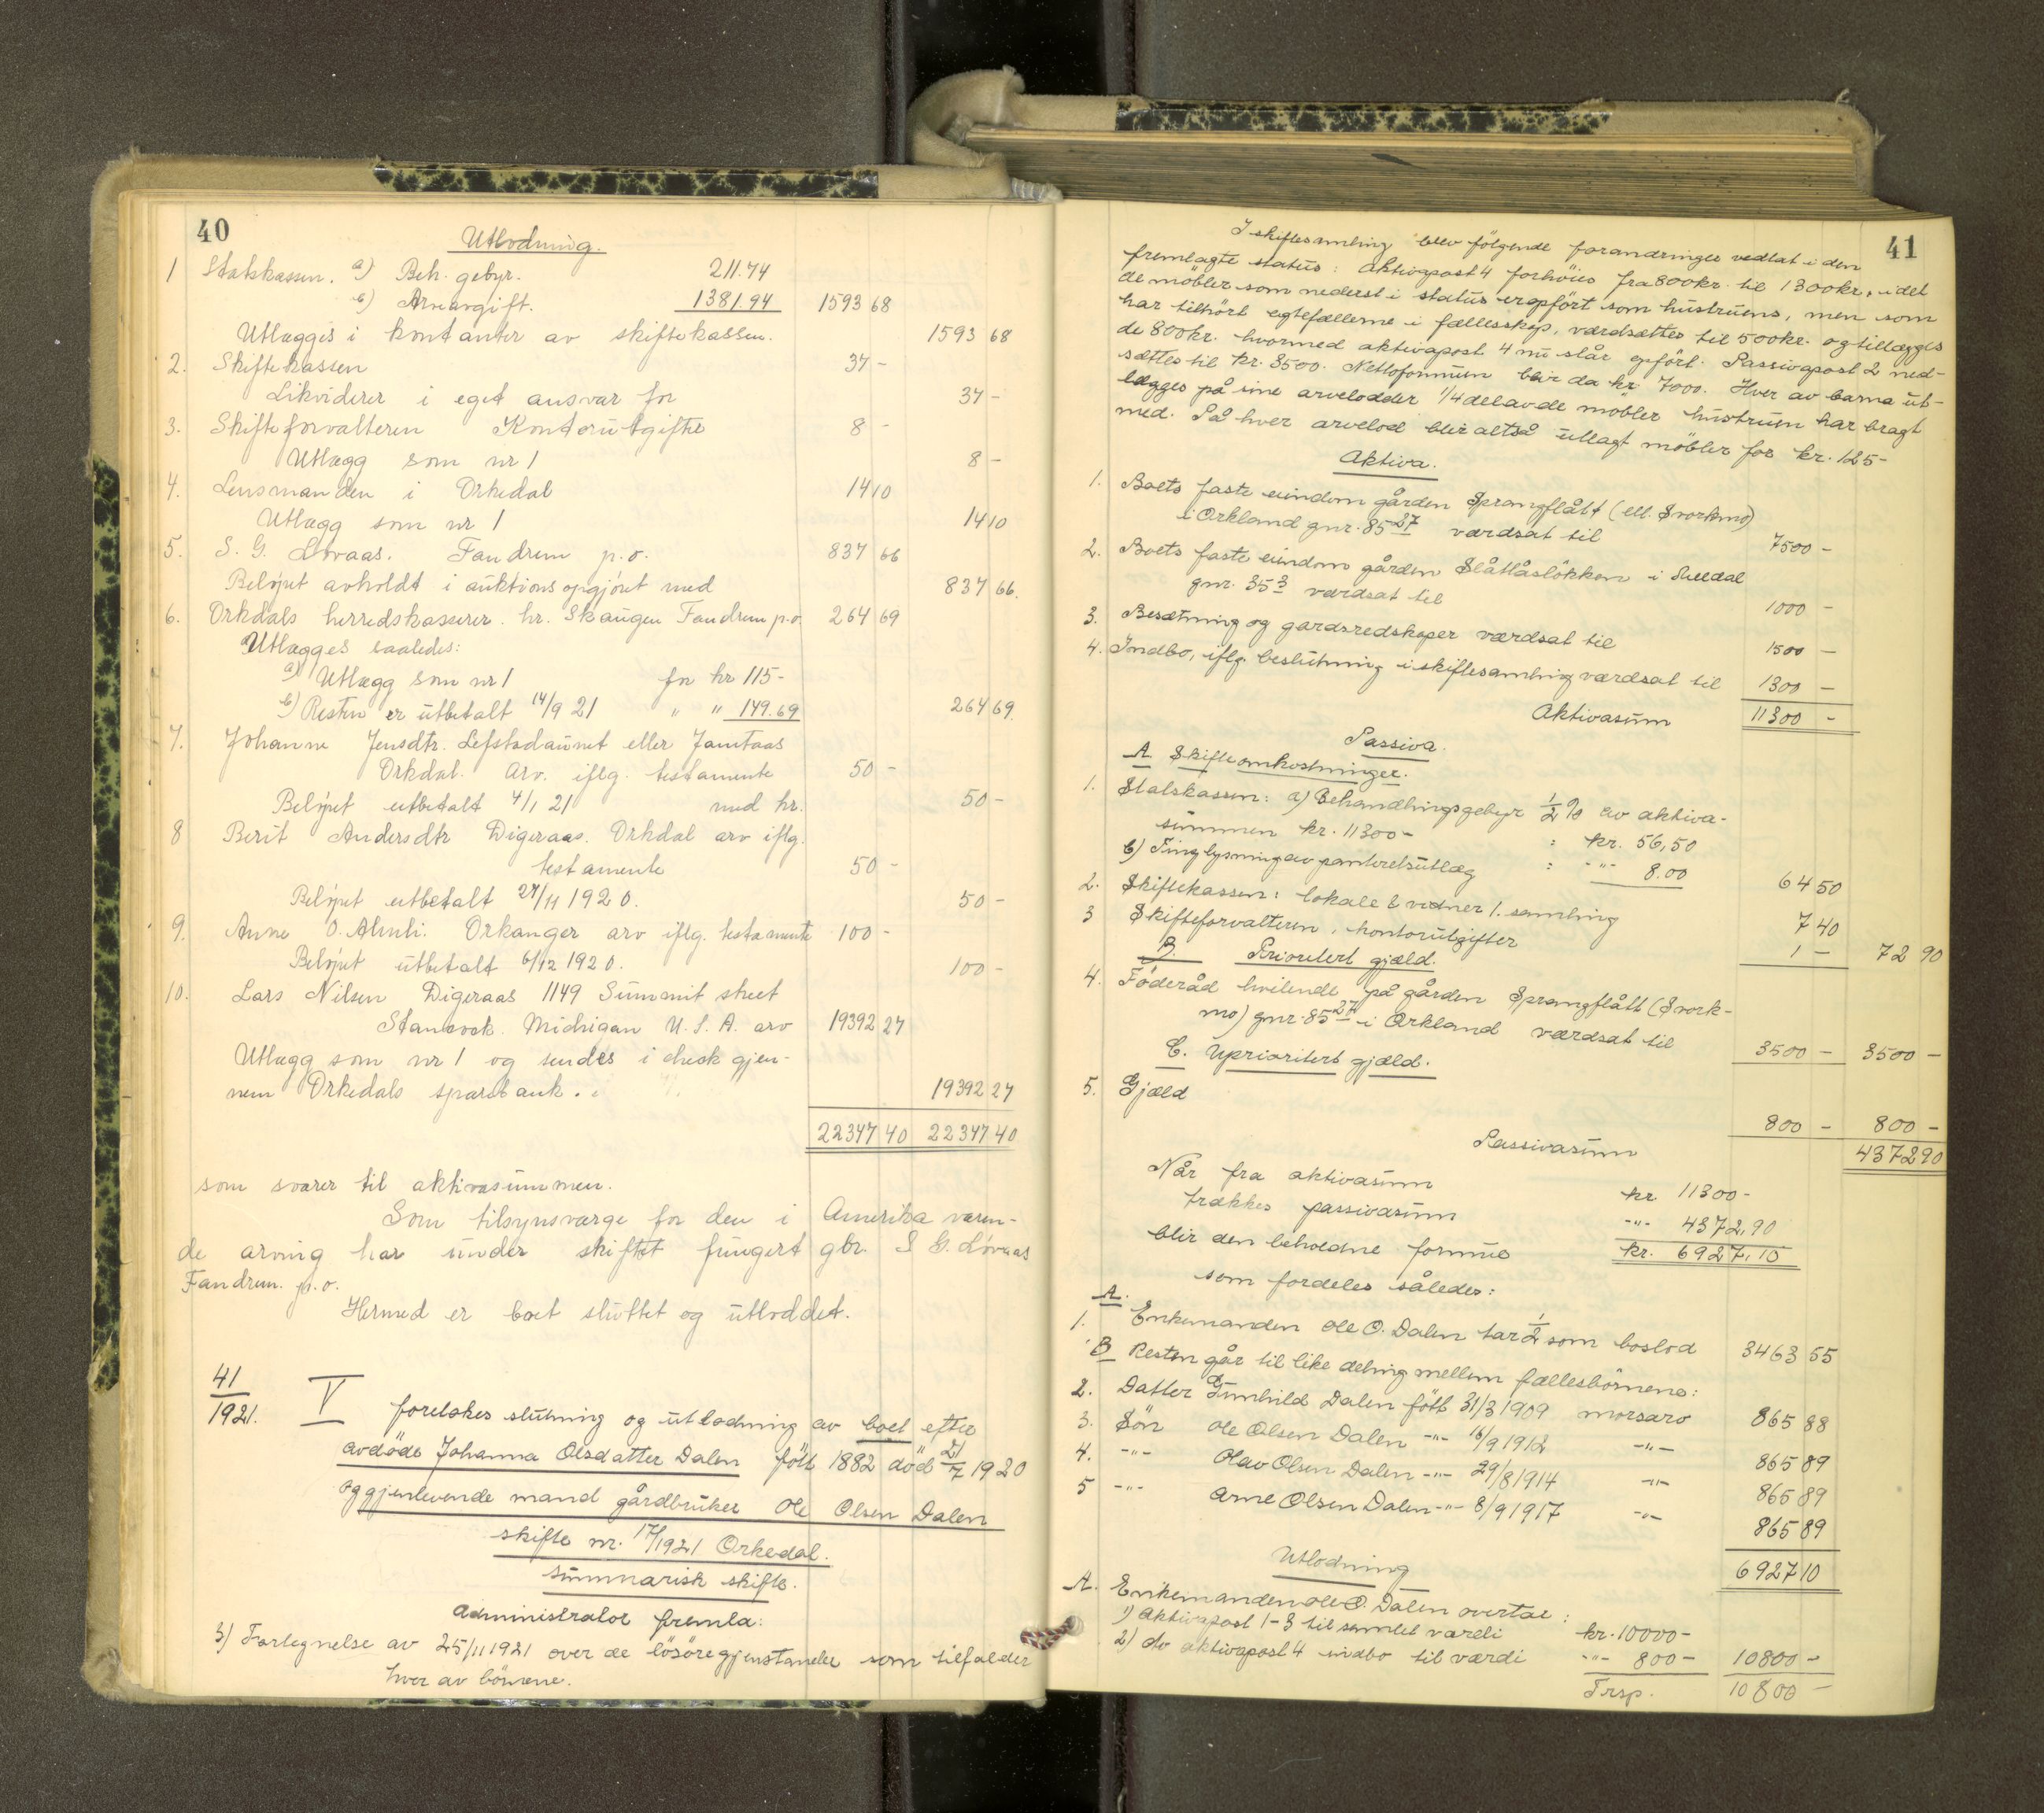 40
Utlodning.
1 Statskassen. a) Beh. gebyr. 211.74
b) Arveavgift. 1381.94 1593 68
Utlægges i kontanter av skiftekassen. 1593 68
2. Skiftekassen 37 -
Likviderer i eget ansvar for 37 -
3. Skifteforvalteren Kontorutgifter 8 -
Utlægg som nr 1 8 -
4. Lensmanden i Orkedal 14 10
Utlægg som nr 1 14 10
5. S. G. Løvaas. Fandrem p.o. 837 66
Beløpet avholdt i auktionsopgjøret med 837 66.
6. Orkdals herredskasserer hr. Skaugen Fandrem p.o. 264 69
Utlægges saaledes:
a) Utlægg som nr 1 for kr 115-
b) Resten er utbetalt 14/9 21 " " 149.69 264 69.
7. Johanne Jensdtr. Lefstadaunet eller Jamtaas
Orkdal. Arv. iflg. testamente 50 -
Beløpet utbetalt 4/1 21 med kr. 50 -
8 Berit Andersdtr Digeraas. Orkdal arv iflg.
testamente 50 -
Beløpet utbetalt 27/11 1920. 50 -
9. Anne O. Almli. Orkanger arv iflg. testamente 100 -
Beløpet utbetalt 6/12 1920. 100 -
10. Lars Nilsen Digeraas 1149 Summit street
Michigan U.S.A. arv 19392 27
Utlægg som nr 1 og sendes i check gjen-
nem Orkedals sparebank. 19392 27
22347 40 22347 40
som svarer til aktivasummen.
Som tilsynsværge for den i Amerika væren-
de arving har under skiftet fungert gbr. S G. Løvaas
Fandrem. p.o.
Hermed er boet sluttet og utloddet.
41/1921. V foretokes slutning og utlodning av boet efter
avdöde Johanna Olsdatter Dalen födt 1882 död 21/7 1920
og gjenlevende mand gårdbruker Ole Olsen Dalen
skifte nr. 17/1921 Orkedal.
summarisk skifte.
Administrator fremla:
3) Fortegnelse av 25/11 1921 over de lösöregjenstander som tilfalder
hver av börnene.
41
I skiftesamling blev følgende forandringer vedtat i den
fremlagte status: Aktivapost 4 forhöies fra 800 kr. til 1300 kr., idet
de möbler som nederst i status er opfört som hustruens, men som
har tilhört egtefællerne i fællesskap, værdsættes til 500 kr. og tillægges
de 800 kr. hvormed aktivapost 4 nu står opfört. Passivapost 2 ned-
sættes til kr. 3500. Nettoformuen blir da kr 7000. Hver av barna ut-
lægges på sine arvelodder 1/4 del av de möbler hustruen har bragt
med. På hver arvelod blir altså utlagt möbler for kr. 125-
Aktiva.
1. Boets faste eiendom gården Sprangflått (ell. Svorkmo)
i Orkland gnr. 85 27 værdsat til 7500 -
2. Boets faste eiendom gården Slåttåslökken i
gnr. 35 3 værdsat til 1000 -
3. Besætning og gardsredskaper værdsat til 1500 -
4. Indbo, iflg. beslutning i skiftesamling værdsat til 1300 -
Aktivasum 11300 -
Passiva.
A Skifteomkostninger.
1. Statskassen: a) Behandlingsgebyr 1/2 % av aktiva-
summen kr. 11300- : kr. 56,50
b) Tinglysning av panteretsutlæg : -"- 8.00 64 50
2. Skiftekassen: lokale & vidner 1. samling 7 40
3 Skifteforvalteren, kontorutgifter 1 - 72 90
B. Prioritert gjæld.
4. Föderåd hvilende på gården Sprangflått (Svork-
mo) gnr. 85 27 i Orkland værdsat til 3500 - 3500 -
C. Uprioritert gjæld.
5. Gjæld 800 - 800 -
Passivasum 4372 90
Når fra aktivasum kr 11300-
trækkes passivasum -"- 4372,90
blir den beholdne formue kr. 6927,10
som fordeles således:
A.
1. Enkemanden Ole O. Dalen tar 1/2 som boslod 3463 55
B Resten går til like deling mellem fællesbörnene:
2. Datter Gunhild Dalen födt 31/3 1909 morsarv 865 88
3. Sön Ole Olsen Dalen -"- 16/9 1912 -"- 865 89
4. -"- Olav Olsen Dalen -"- 29/8 1914 -"- 865 89
5 -"- Arne Olsen Dalen -"- 8/9 1917 -"- 865 89
6927 10
Utlodning
A. Enkemanden Ole O. Dalen overtar:
1) Aktivapost 1-3 til samlet værdi kr. 10000-
2) av aktivapost 4 indbo til værdi -"- 800- 10800 -
Trsp. 10800 -